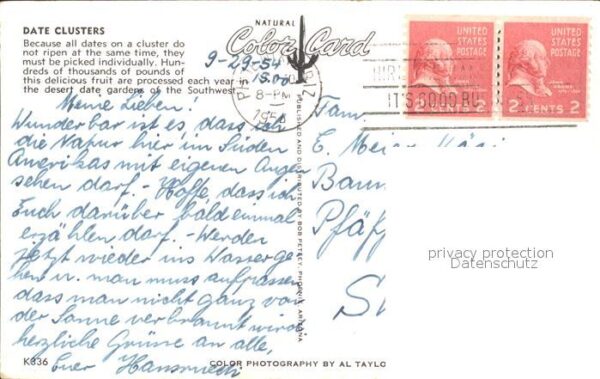 DATE CLUSTERS
Because all dates on a cluster do
not ripen at the same time, they
must be picked individually. Hun-
dreds of thousands of pounds of
this delicious fruit are processed each year in
the desert date gardens of the Southwest.
NATURAL
Color Card
9-29-54
15.00
8-PM
1954
IT'S GOOD BU
UNITED
STATES
POSTAGE
2 CENTS 2
UNITED
STATES
POSTAGE
2 CENTS 2
Meine Lieben!
Wunderbar ist es, dass ich
die Natur hier im Süden
Amerikas mit eigenen Augen
sehen darf. - Hoffe, dass ich
Euch darüber bald einmal
erzählen darf. - Werden
jetzt wieder ins Wasser ge-
hen u. man muss aufpassen
dass man nicht ganz von
der Sonne verbrannt wird
herzliche Grüsse an alle,
Euer Hansruedi
PUBLISHED AND DISTRIBUTED BY BOB PETLEY, PHOENIX, ARIZONA
Fam.
E. Meier
Baum
Pfäf
S
privacy protection
Datenschutz
K336
COLOR PHOTOGRAPHY BY AL TAYLO